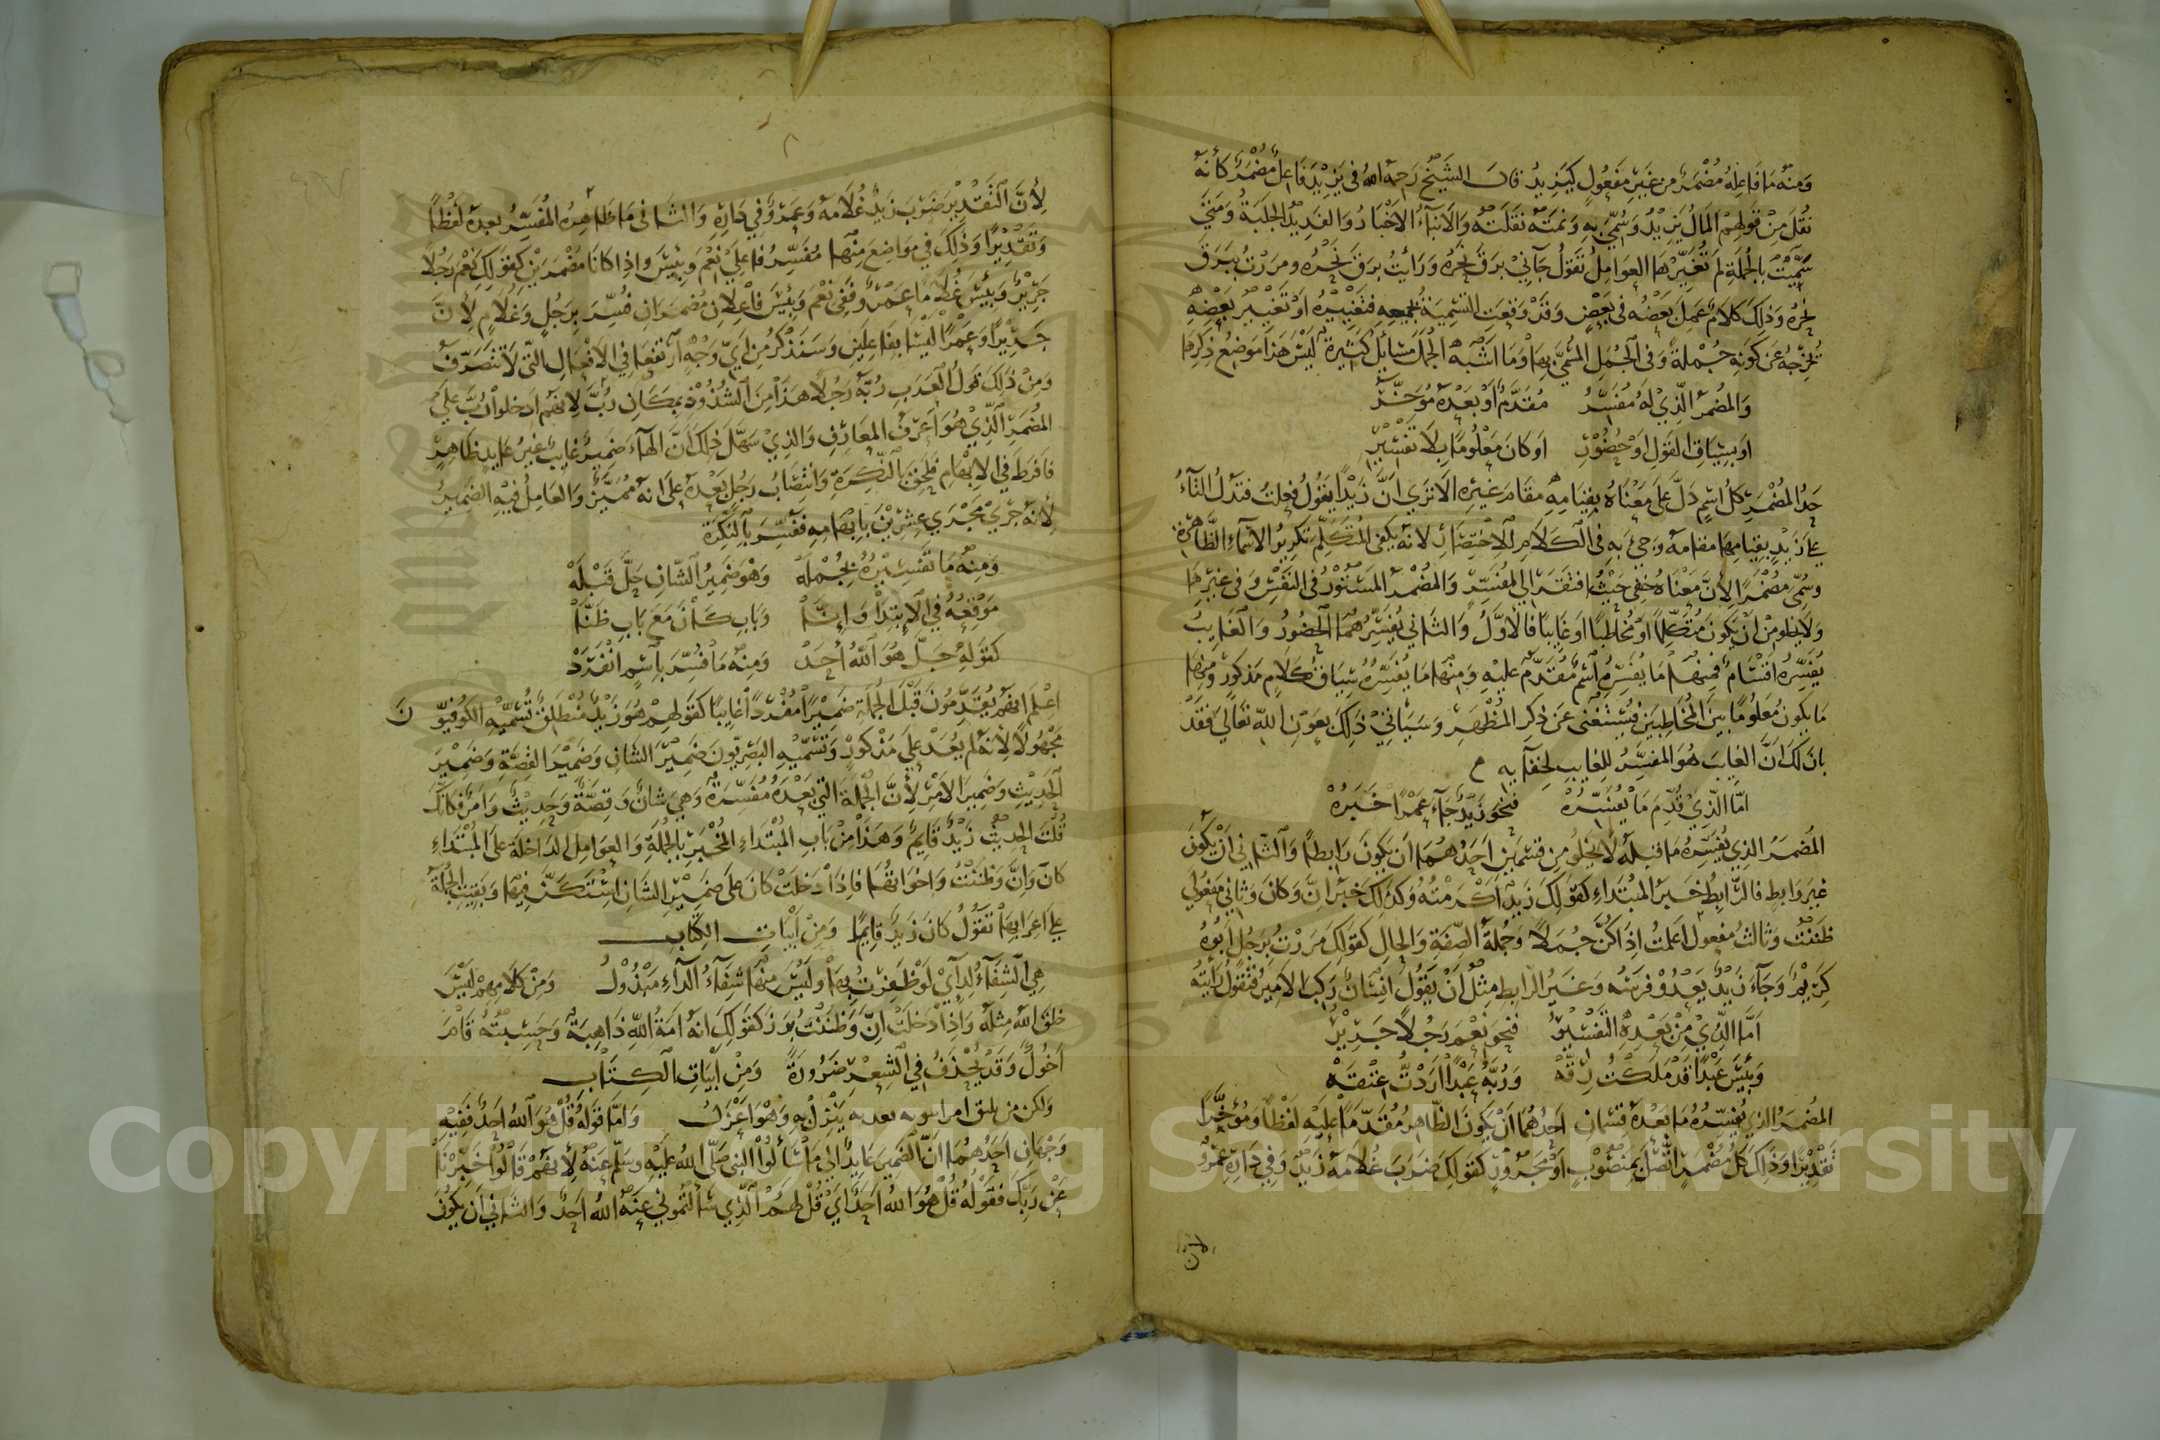 ومنه ما فاعله مضمر من غير مفعول كيزيد قال الشيخ رحمه الله في يزيد فاعل مضمر كأنه
نقل من قولهم المال يزيد وسمي به ونمته نقلته والانباء الاخبار والفديد الجلبة ومتى
سميت بالجملة لم تغيرها العوامل تقول جاني برق نحره ورايت برق نحره ومررت ببرق
نحره وذلك كلام عمل بعضه في بعض وقد وقعت التسمية بجميعه فتغييره او تغيير بعضه
يخرجه عن كونه جملة وفي الجمل المسمى بها وما اشبه الجمل مسايل كثيرة ليس هذا موضع ذكرها
والمضمر الذي له مفسر مقدم او بعده موخر
او بسياق القول او حضور او كان معلوما بلا تفسير
حد المضمر كل اسم دل على معناه بقيامه مقام غيره الا ترى ان زيدا يقول فعلت فتدل التاء
على زيد بقيامها مقامه وجئ به في الكلام للاختصار لانه يكفي المتكلم تكرير الاسماء الظاهرة
وسمي مضمرا لان معناه خفي حيث افتقر الى المفسر والمضمر المستور في النفس وفي غيرها
ولا يخلو من ان يكون متكلما او مخاطبا او غايبا فالاول والثاني يفسرهما الحضور والغايب
يفسره اقسام فمنها ما يفسره اسم مقدم عليه ومنها ما يفسره سياق كلام مذكور ومنها
ما يكون معلوما بين المخاطبين فيستغنى عن ذكر المظهر وسياتي ذلك بعون الله تعالى فقد
بان لك ان الغايب هو المفسر للغايب لخفايه م
اما الذي قدم ما يفسره فنحو زيد جاء عمرا خبره
المضمر الذي يفسره ما قبله لا يخلو من قسمين احدهما ان يكون رابطا والثاني ان يكون
غير رابط فالرابط خبر المبتداء كقولك زيد اكرمته وكذلك خبر ان وكان وثاني مفعولي
ظننت وثالث مفعول اعلمت اذا كن جملا وجملة الصفة والحال كقولك مررت برجل ابوه
كريم وجاء زيد يعدو فرسه وغير الرابط مثل ان يقول انسان ركب الامير فتقول رايته
اما الذي من بعده التفسير فنحو نعم رجلا جرير
وبئس عبدا قد ملكت رقه وربه عبدا اردت عتقه
المضمر الذي يفسره ما بعده قسمان احدهما ان يكون الظاهر مقدما عليه لفظا ومؤخرا
تقديرا وذلك كل مضمر اتصل بمنصوب او مجرور كقولك ضرب غلامه زيد وفي داره عمرو
لان
لأن التقدير ضرب زيد غلامه وعمرو في داره والثاني ما ظاهره المفسر بعده لفظا
وتقديرا وذلك في مواضع منها مفسر فاعلي نعم وبئس واذا كانا مضمرين كقولك نعم رجلا
جرير وبئس غلاما عمرو ففي نعم وبئس فاعلان مضمران فسر برجل وغلام لان
جريرا وعمرا ليسا بفاعلين وسنذكر من اي وجه ارتفعا في الافعال التي لا تتصرف
ومن ذلك قول العرب ربه رجلا هذا من الشذوذ بمكان رب لانهم ادخلوا رب على
المضمر الذي هو اعرف المعارف والذي سهل ذلك ان الهاء ضمير غايب غير عايد ظاهر
فافرط في الابهام فلحق بالنكرة وانتصاب رجل بعده على انه مميز والعامل فيه الضمير
لانه جرى مجرى عشرين بابهامه ففسر بالنكرة
ومنه ما تفسيره بجمله وهو ضمير الشان حل قبله
موقعه في الابتدا وانا وباب كان مع باب ظنا
كقوله جل هو الله احد ومنه ما فسر باسم انفرد
اعلم انهم يقدمون قبل الجملة ضميرا مفردا غايبا كقولهم هو زيد منطلق تسميه الكوفيو ن
مجهولا لانه لم يعد على مذكور وتسميه البصريون ضمير الشان وضمير القصة وضمير
الحديث وضمير الامر لأن الجملة التي بعده مفسرة وهي شان وقصة وحديث وامر فكانك
قلت الحديث زيد قايم وهذا من باب المبتداء المخبر بالجملة والعوامل الداخلة على المبتداء
كان وان وظننت واخواتها فاذا دخلت كان على ضمير الشان استكن فيها وبقيت الجملة
على اعرابها تقول كان زيد قايم ومن ابيات الكتاب
هي الشفاء لدآي لو ظفرت بها وليس منها شفاء الداء مبذول ومن كلامهم ليس
خلق الله مثله واذا دخلت ان وظننت برز كقولك انه امة الله ذاهبة وحسبته قام
اخوك وقد يحذف في الشعر ضرورة ومن ابيات الكتاب
ولكن من يلق امرا ينوبه بعدته ينزل به وهو اعزل واما قوله قل هو الله احد ففيه
وجهان احدهما ان الضمير عايد الى ما سألوا النبي صلى الله عليه وسلم عنه لانهم قالوا خبرنا
عن ربك فقوله قل هو الله احد اي قل لهم الذي سالتموني عنه الله احد والثاني ان يكون
Copyright © King Saud University
1957